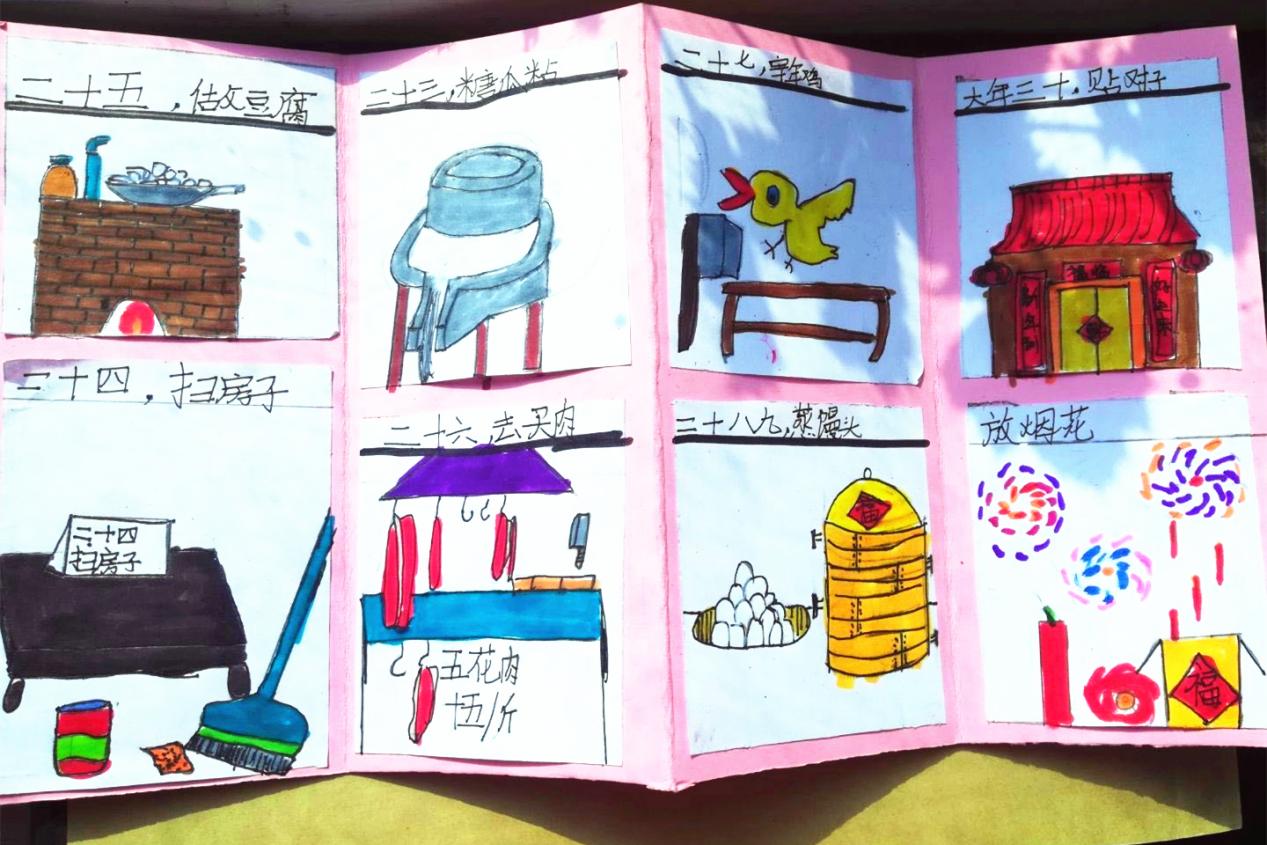 二十五，做豆腐
二十三，糖瓜粘
二十七，宰鸡
大年三十，贴对子
福临
好运来
二十四，扫房子
二十四
扫房子
二十六，去买肉
五花肉
十五/斤
二十八九，蒸馒头
福
放烟花
福